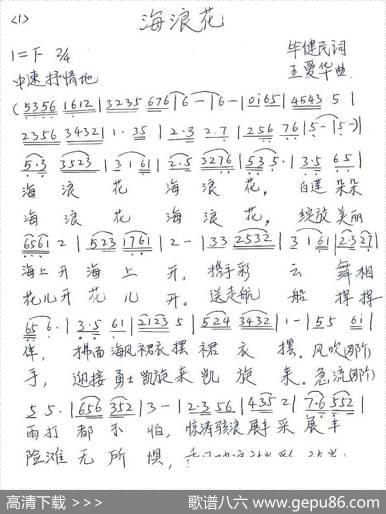 <1>
海浪花
1=F 2/4
毕健民词
中速 抒情地
王爱华曲
(5356 1612 | 3235 676 | 6 - | 6 - | 0165 | 4543 5 |
2356 3432 | 1· 35 | 2·3 2·7 | 256 76 | 5 - | 5 -)
5·3 3523 | 3 161 | 2·5 3276 | 535· | 3·5 65 |
海 浪 花 海 浪 花, 白莲 朵朵
海 浪 花 海 浪 花, 绽放 美丽
6561 2 | 523 1761 | 2 - | 33 2532 | 3 161 | 2·3 27 |
海上开 海 上 开。 携手彩 云 舞相
花儿开 花 儿 开。 送走航 船 挥挥
65 6· | 3·5 61 | 2123 5 | 524 3432 | 1 - | 55 61 |
伴, 拂面 海风 裙衣 摆 裙 衣 摆。 风吹(那个)
手, 迎接 勇士 凯旋 来 凯 旋 来。 急流(那个)
5 5· | 656 352 | 3 - | 2·3 56 | 435 2 | 7·6 552 |
雨打 都 不 怕, 惊涛骇浪 展丰采 展丰
险滩 无 所 惧,
高清下载 >>>
歌谱八六 www.gepu86.com